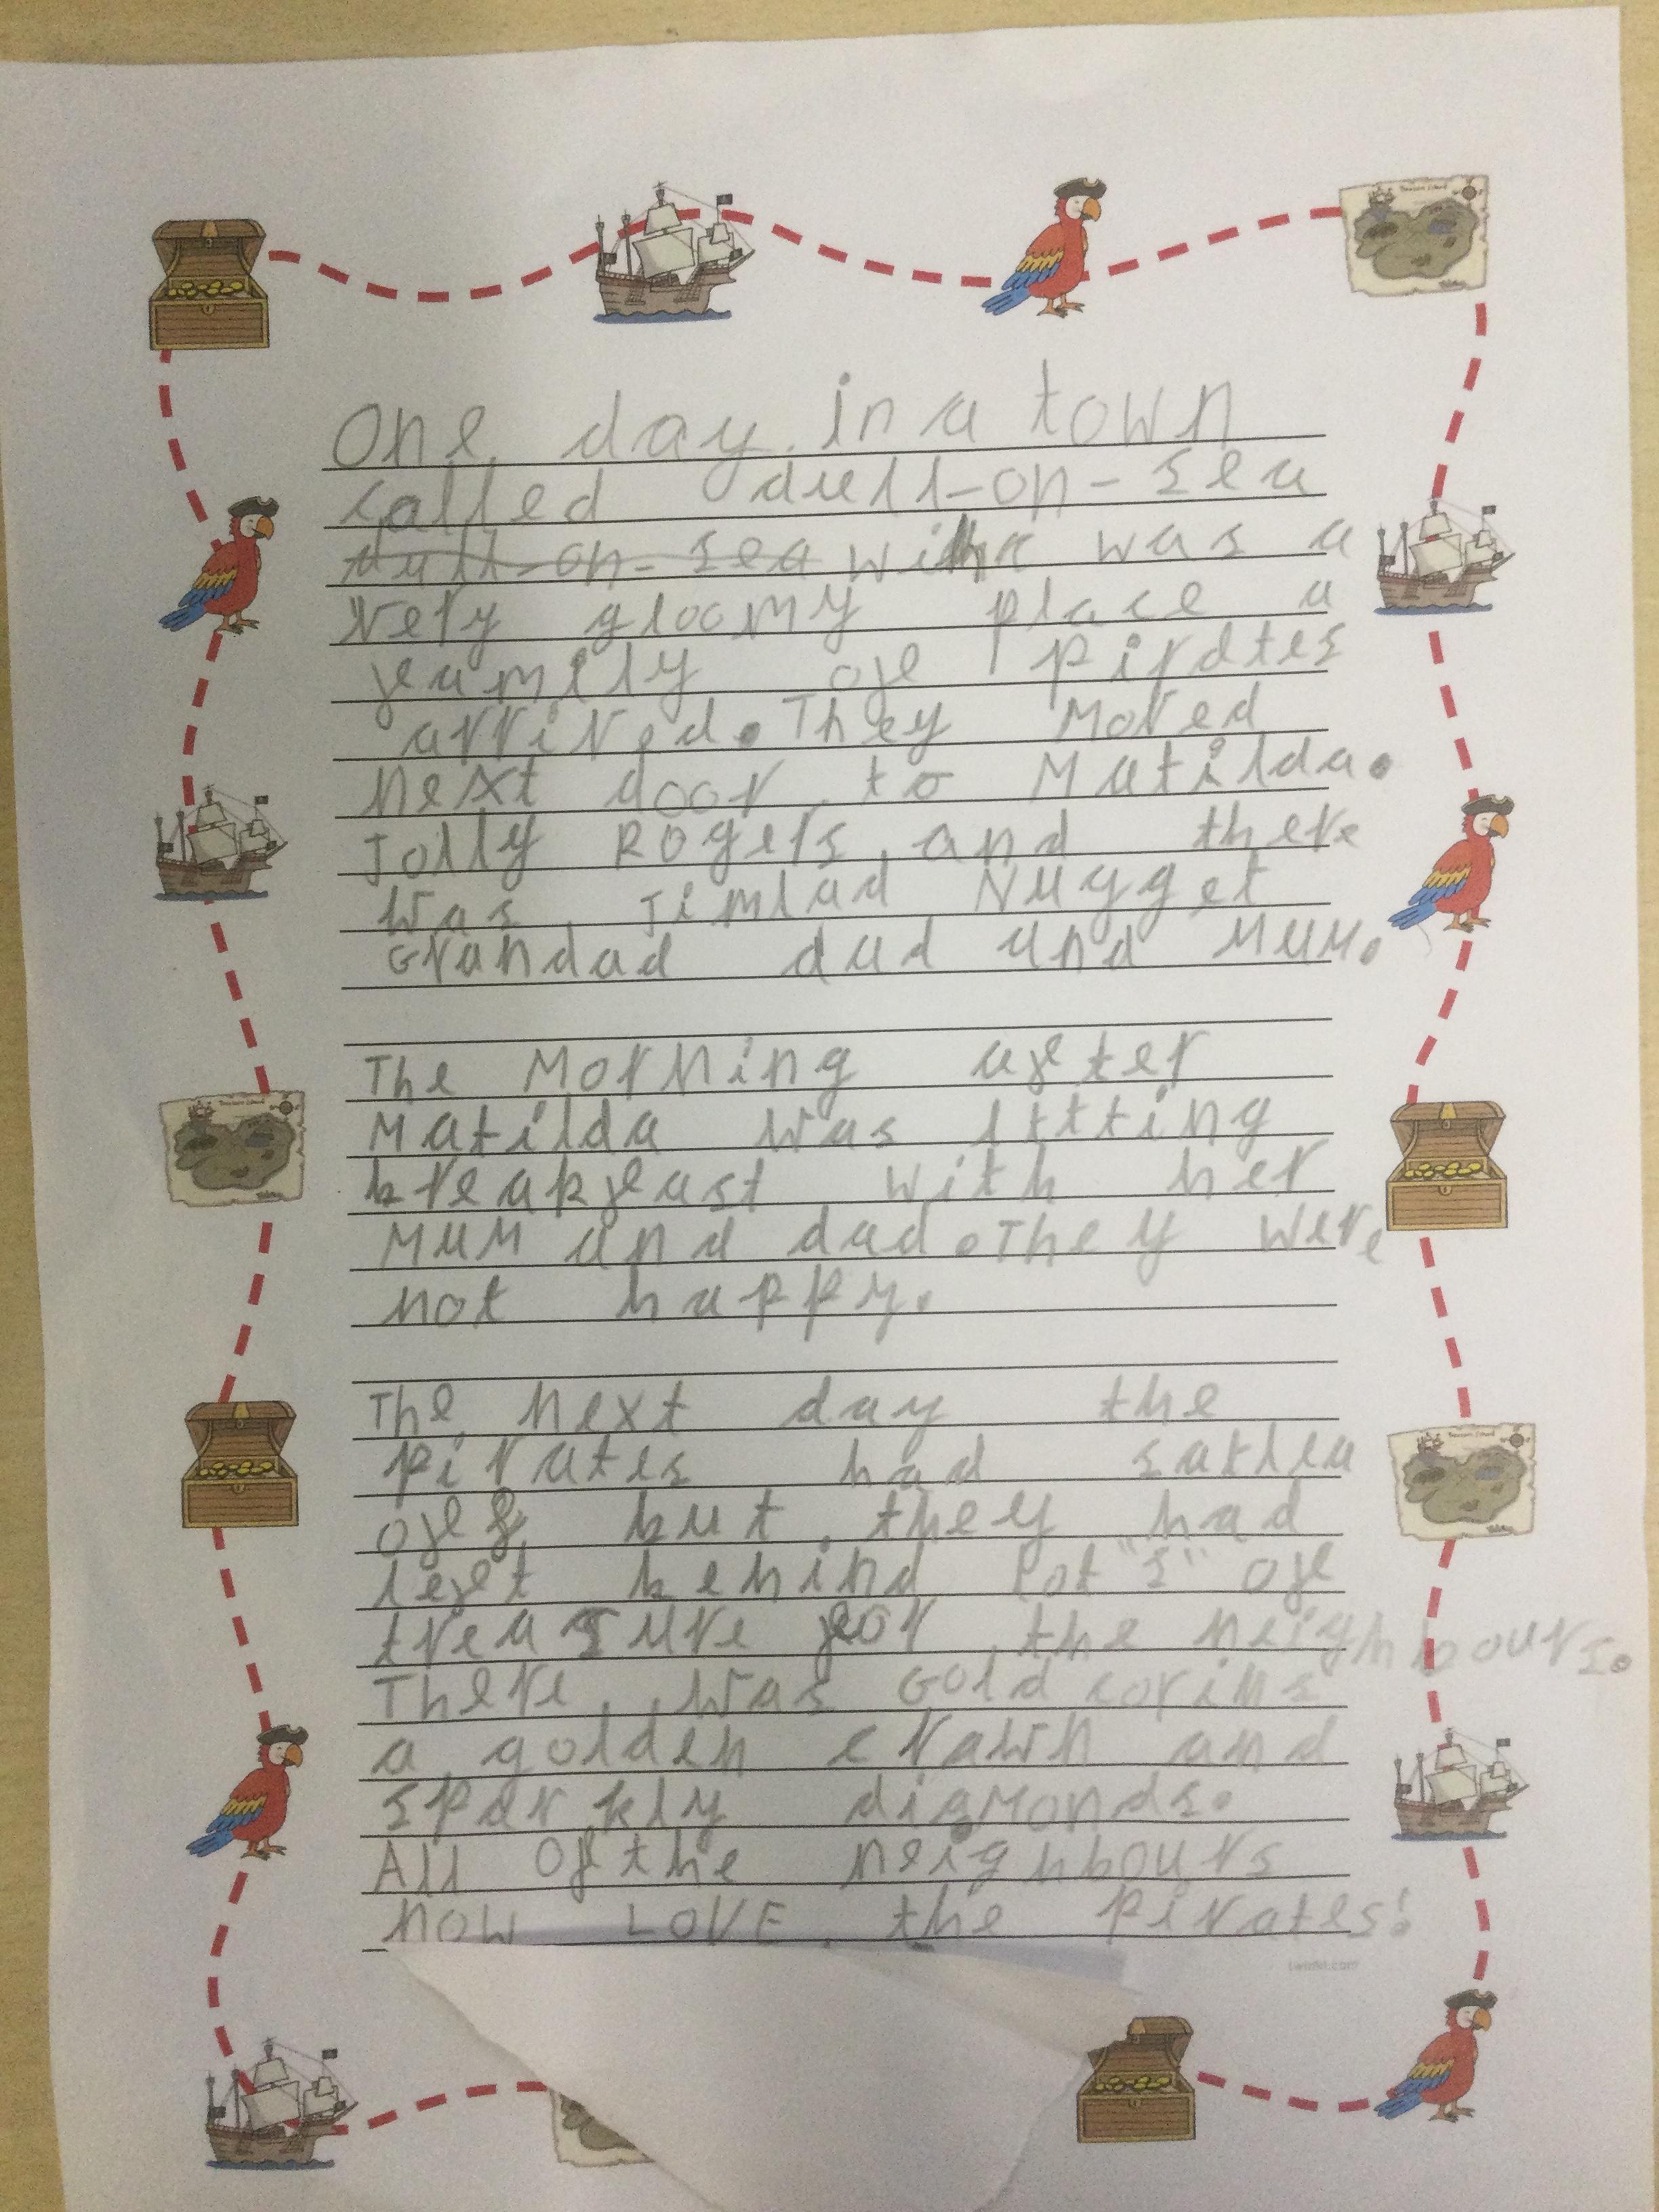 One day in a town
called dull-on-sea
dull-on-sea was a
very gloomy place a
feamily ofe pirates
arrived. They Moved
next door to Matilda.
Jolly Rogers and there
was Jimlad Nugget
Grandad dad and MuM.
The Morning after
Matilda was itting
breakfeast with her
MuM and dad. They were
not happy.
The next day the
pirates had
off but they had
left behind lot"s" ofe
treasure for the neighbours.
There was Gold
a golden crawn and
sparkly diamonds.
All of the neighbours
now LOVE the pirates!